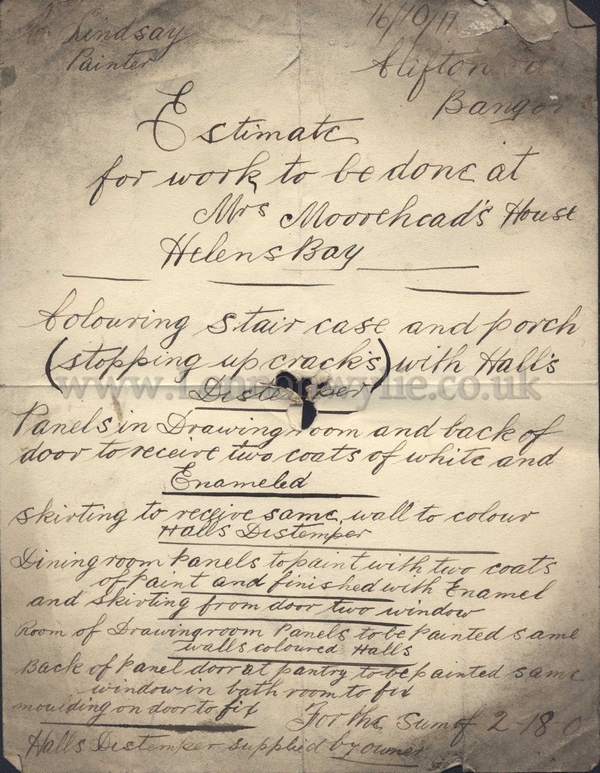 Lindsay
Painter
16/10/11
Clifton
Bangor
Estimate
for work to be done at
Mrs Moorehead's House
Helens Bay
Colouring stair case and porch
(stopping up crack's) with Hall's
Distemper
Panels in Drawingroom and back of
door to receive two coats of white and
Enameled
skirting to receive same, wall to colour
Halls Distemper
Diningroom Panels to paint with two coats
of Paint and finished with Enamel
and skirting from door two window
Room of Drawingroom Panels to be Painted same
walls coloured Halls
Back of Panel door at pantry to be painted same
window in bath room to fix
moulding on door to fix For the Sum of 2-18 0
Halls Distemper supplied by owner